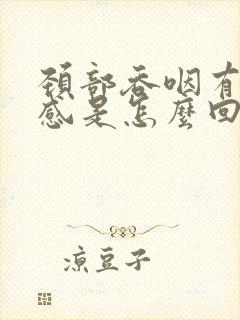 頚部吞咽有
感是怎麼回
凉豆子